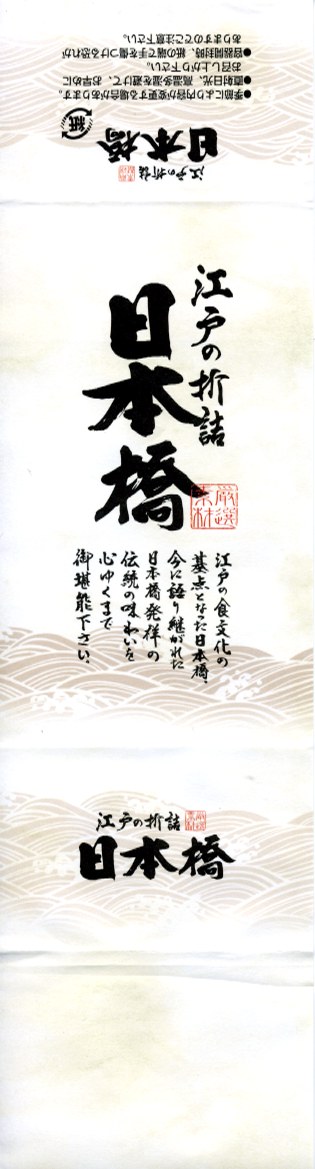 江戸の折詰
日本橋
厳選
素材
●季節により内容が変更する場合があります。
●直射日光、高温多湿を避けて、お早めに
お召し上がり下さい。
●容器開封時、紙の端で手を傷つける恐れが
ありますのでご注意下さい。
紙
江戸の折詰
日本橋
厳選
素材
江戸の食文化の
基点となった日本橋、
今に語り継がれた
日本橋発祥の
伝統の味わいを
心ゆくまで
御堪能下さい、
江戸の折詰
厳選
素材
日本橋